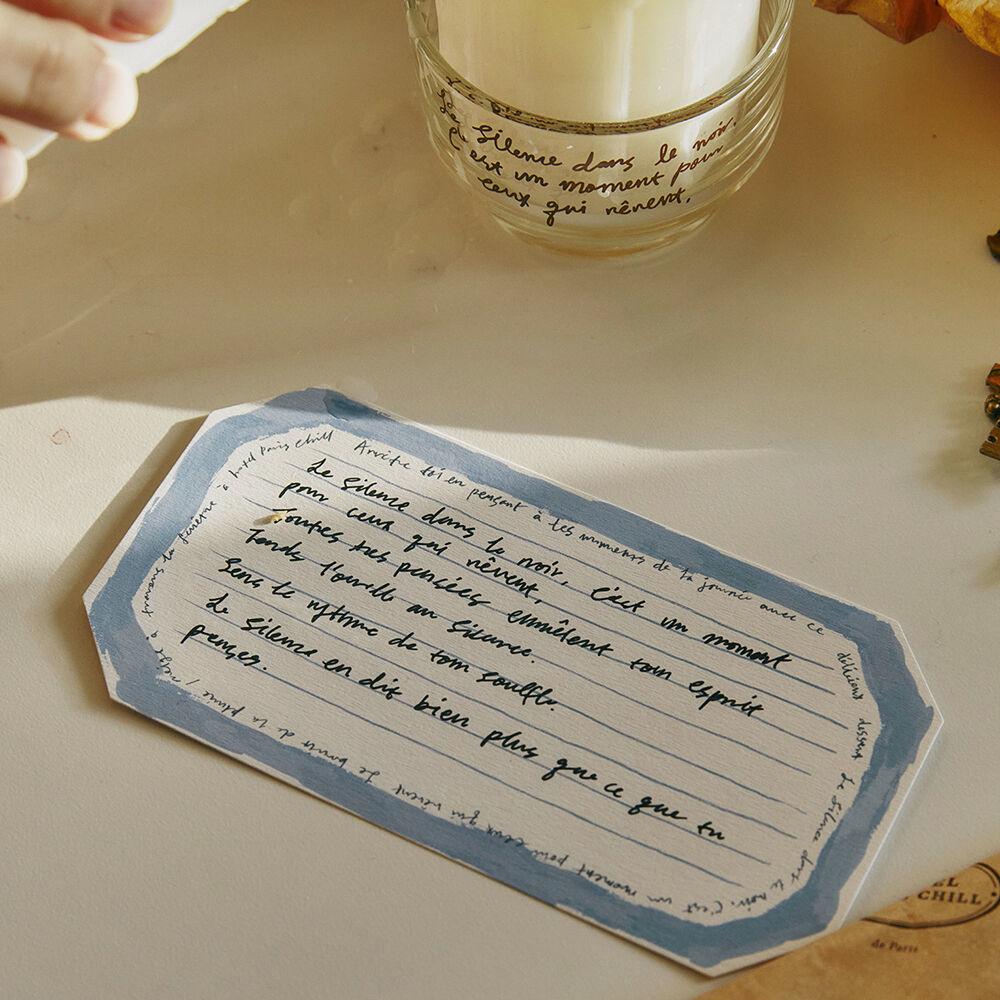 Le Silence dans le noir.
C'est un moment pour
ceux qui rêvent.
à hotel Paris chill
Arrête toi en pensant à tes moments de ta journée avec ce
délicieux dessert
Le Silence dans le noir. C'est un moment pour ceux qui rêvent
Le bruit de la pluie / neige
à travers la fenêtre
Le Silence dans le noir. C'est un moment
pour ceux qui rêvent.
Toutes tes pensées emmêlent tom esprit
Tends l'oreille au silence.
Sens le rythme de tom souffle.
Le Silence en dit bien plus que ce que tu
penses.
EL
CHILL
de Paris